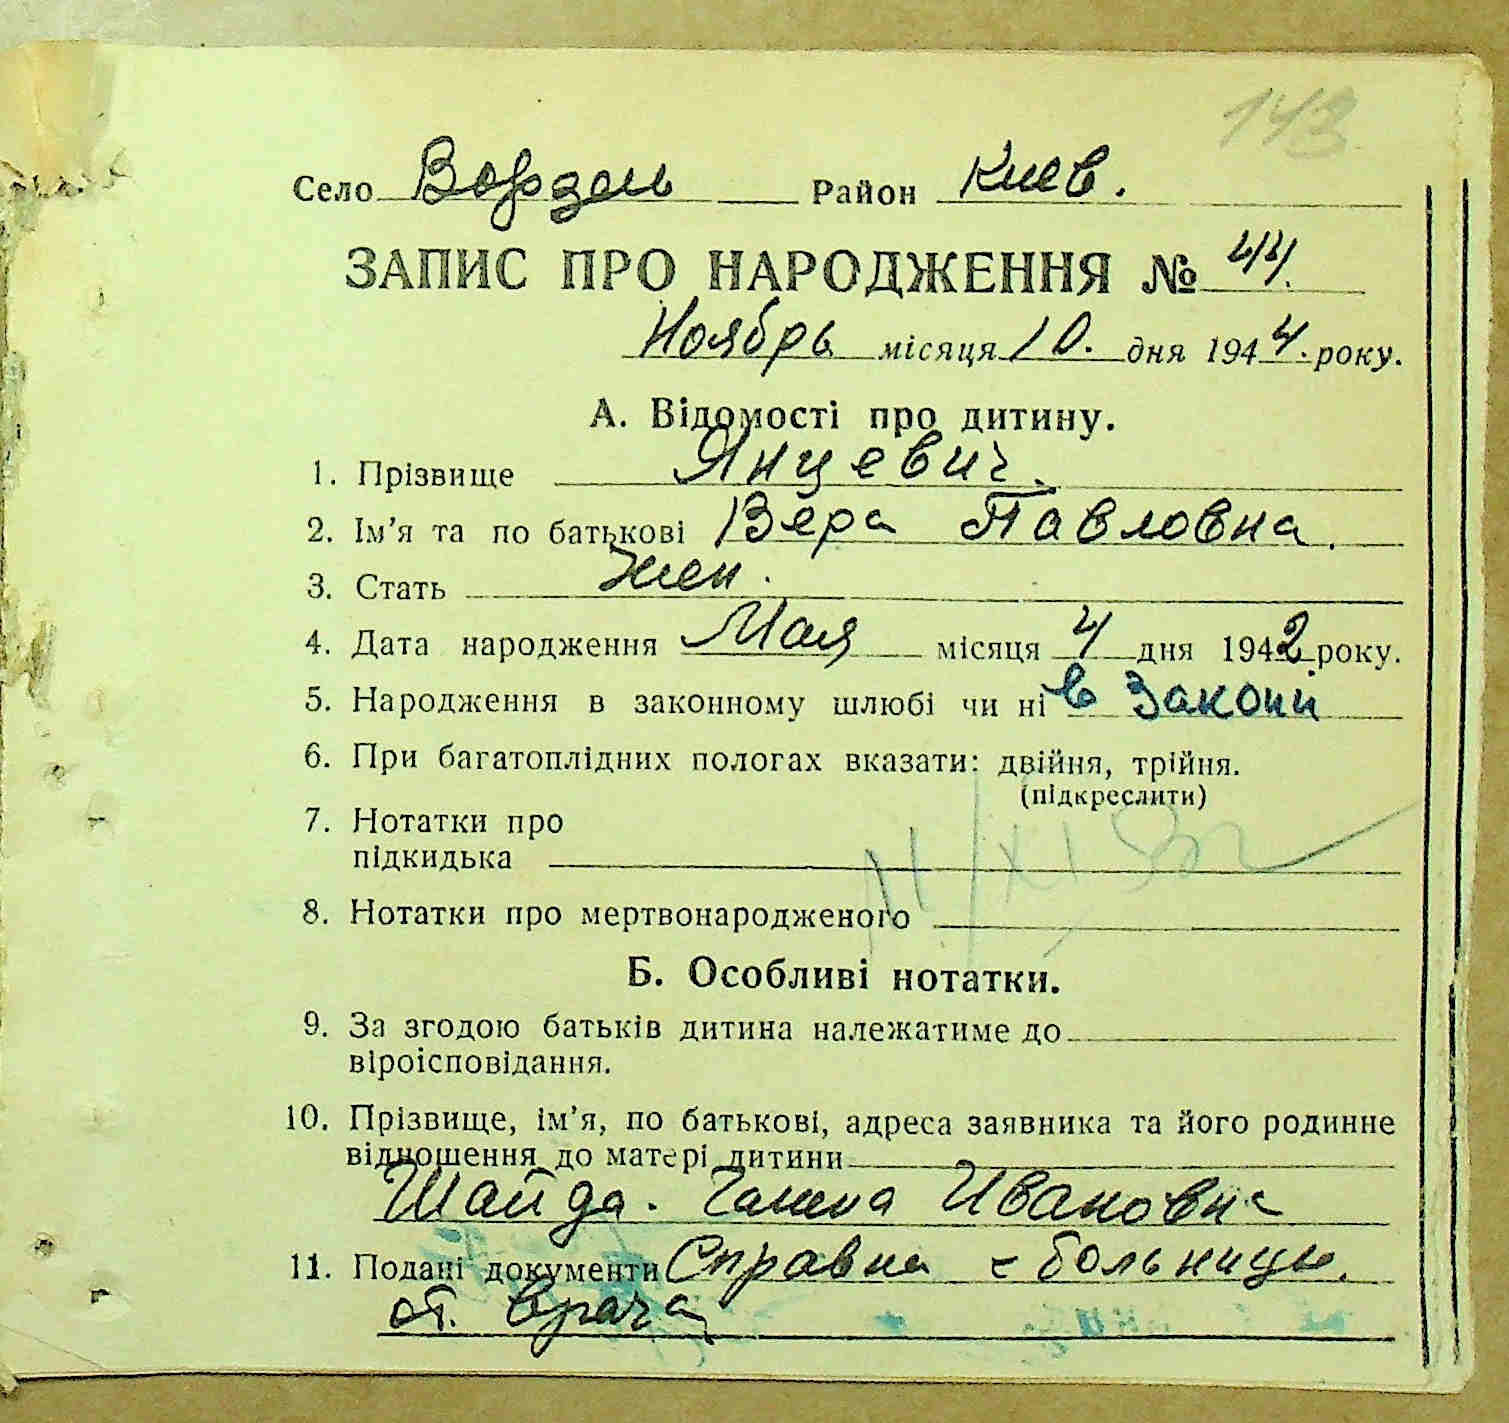 143
Село Ворзель Район Киев.
ЗАПИС ПРО НАРОДЖЕННЯ № 44.
Ноябрь місяця 10. дня 1944. року.
А. Відомості про дитину.
1. Прізвище Янцевич.
2. Ім'я та по батькові Вера Павловна.
3. Стать Жен.
4. Дата народження Мая місяця 4 дня 1942 року.
5. Народження в законному шлюбі чи ні в законні
6. При багатоплідних пологах вказати: двійня, трійня.
(підкреслити)
7. Нотатки про
підкидька
8. Нотатки про мертвонародженого
Б. Особливі нотатки.
9. За згодою батьків дитина належатиме до
віроісповідання.
10. Прізвище, ім'я, по батькові, адреса заявника та його родинне
відношення до матері дитини
Шайда. Галина Ивановна
11. Подані документи Справка с больницы.
от. врача